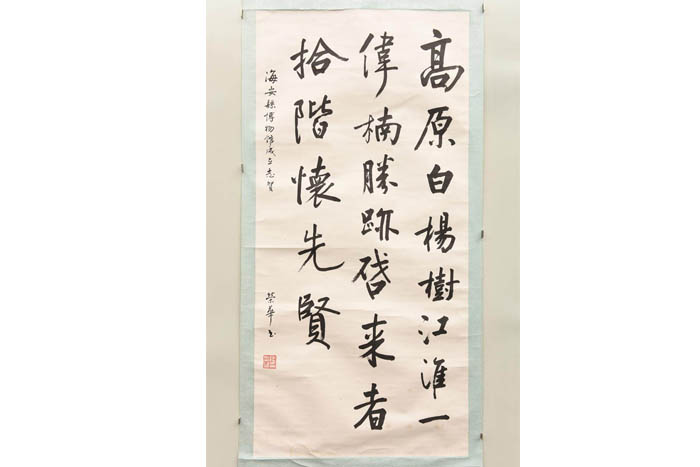 高原白楊樹江淮一
偉楠勝跡啓来者
拾階懷先賢
海安縣博物館成立志賀
荣華书